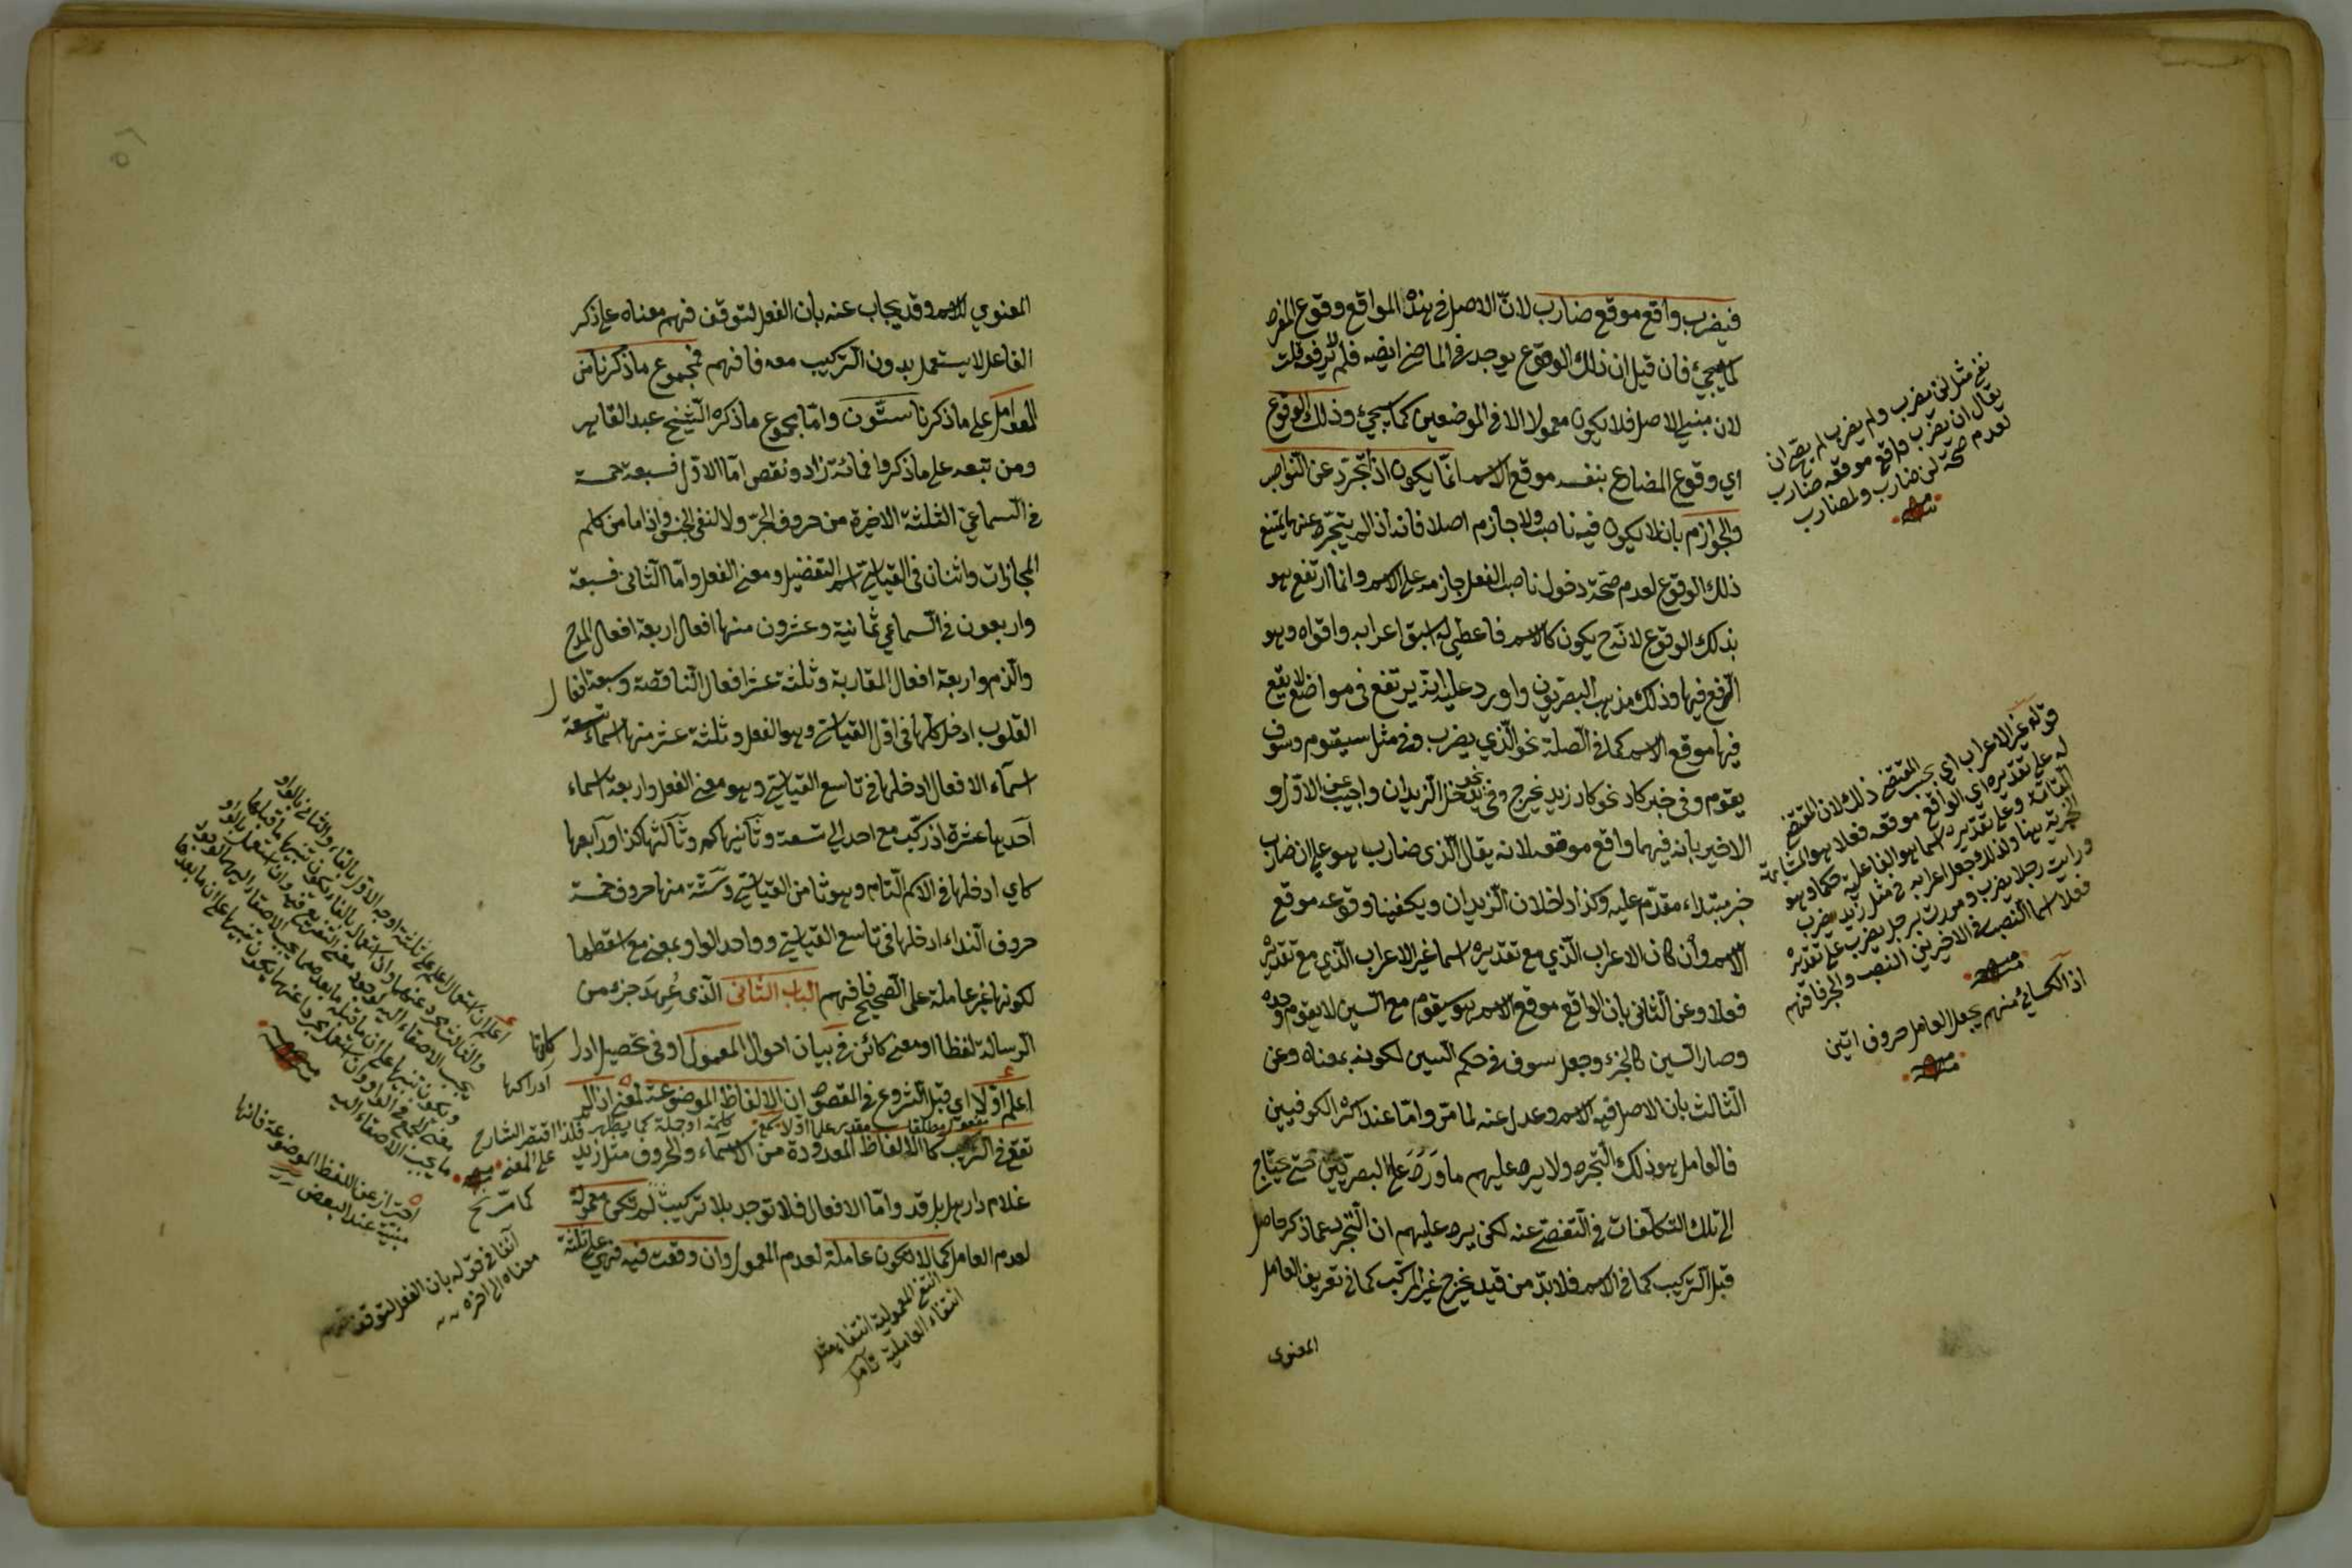 فيضرب واقع موقع ضارب لانّ الاصل في هذه المواقع وقوع المفرد
كما سيجيئ فان قيل ان ذلك الوقوع يوجد في الماضي ايضا فلم لم يرفع قلت
لان مبنى الاصل فلا يكون معمولا الا في الموضعين كما سيجيئ وذلك الوقوع
اي وقوع المضارع بنفسه موقع الاسم انّما يكون اذا تجرّد عن النواصب
والجوازم بان لا يكون فيه ناصب ولا جازم اصلا فانه اذا لم يتجرّد عنهما يمتنع
ذلك الوقوع لعدم صحّة دخول ناصب الفعل وجازمه على الاسم وانما ارتفع هو
بذلك الوقوع لانّه ح يكون كالاسم فاعطي له اسبق اعرابه واقواه وهو
الرفع فيها وذلك مذهب البصريين واورد عليه انه يرتفع في مواضع لا يقع
فيها موقع الاسم كما في الصلة نحو الّذي يضرب وفي مثل سيقوم وسوف
يقوم وفي خبر كاد نحو كاد زيد يخرج وفي نحو يدخل الزيدان واجيب عن الاوّل و
الاخير بانه فيهما واقع موقعه لانه يقال الّذي ضارب هو على ان ضارب
خبر مبتداء مقدّم عليه وكذا داخلان الزيدان ويكفينا وقوعه موقع
الاسم وان كان الاعراب الّذي مع تقديره اسما غير الاعراب الّذي مع تقديره
فعلا وعن الثاني بان الواقع موقع الاسم هو سيقوم مع السين لا يقوم وحده
وصار السين كالجزء وجعل سوف في حكم السين لكونه بمعناه وعن
الثالث بان الاصل فيه الاسم وعدل عنه لما مرّ وامّا عند اكثر الكوفيين
فالعامل هو ذلك التجرد ولا يرد عليهم ما ورد على البصريين حتى يحتاج
الى تلك التكلّفات في التفصّي عنه لكن يرد عليهم ان التجرد عما ذكر حاصل
قبل التركيب كما في الاسم فلا بدّ من قيد يخرج غير المركّب كما في تعريف العامل
المعنوى
نفى مثل لن يضرب ولم يضرب لم يصح ان
يقال ان يضرب واقع موقعه ضارب
لعدم صحّة لن ضارب ولم ضارب
منه
قوله غير الاعراب اي بحسب المقتضى ذلك لان المقتضى
له على تقديره اي الواقع موقعه فعلا هو المشابهة
التامّة وعلى تقديره اسما هو الفاعلية حكما وهو
الخبرية هنا ولذلك جعل اعرابه في مثل زيد يضرب
ورايت رجلا يضرب ومررت برجل يضرب على تقديره
فعلا اسما النصب في الاخيرين النصب والجر فافهم
منه
اذ الكسائي منهم يجعل العامل حروف اتين
منه
المعنوي للاسم وقد يجاب عنه بان الفعل لتوقف فهم معناه على ذكر
الفاعل لا يستعمل بدون التركيب معه فافهم فمجموع ما ذكرنا من
العوامل على ما ذكرنا ستّون وامّا مجموع ما ذكره الشيخ عبد القاهر
ومن تبعه على ما ذكروا فمائة زاد ونقص امّا الاوّل فسبعة خمسة
في السماعيّ الثلثة الاخيرة من حروف الجرّ ولا لنفي الجنس واذ اما من كلم
المجازات واثنان في القياسيّ اسم التفضيل ومعنى الفعل وامّا الثاني فسبعة
واربعون في السماعي ثمانية وعشرون منها افعال اربعة افعال المدح
والذم واربعة افعال المقاربة وثلثة عشر افعال الناقصة وسبعة افعال
القلوب ادخل كلّها في اوّل القياسيّ وهو الفعل وثلثة عشر منها اسماء تسعة
اسماء الافعال ادخلها في تاسع القياسيّ وهو معنى الفعل واربعة اسماء
احديها عشرة اذ ركّب مع احد الى تسعة وثانيها كم وثالثها كذا ورابعها
كاي ادخلها في الاسم التام وهو ثامن القياسيّ وستّة منها حروف خمسة
حروف النداء ادخلها في تاسع القياسيّ وواحد الواو بمعنى مع اسقطها
لكونها غير عاملة على الصحيح فافهم الباب الثاني الّذي عُهِدَ جزء من
الرسالة لفظا او معنى كائن في بيان احوال المعمول او في تحصيل ادراك
اعلم اوّلا اي قبل الشروع في المقصود ان الالفاظ الموضوعة لمعنى اذا لم
تقع في التركيب كالالفاظ المعدودة من الاسماء والحروف مثل زيد
غلام دار هل بل قد وامّا الافعال فلا توجد بلا تركيب لم تكن معمولة
لعدم العامل كما لا تكون عاملة لعدم المعمول وان وقعت فيه فهي على ثلثة
كلمة او جملة كما يظهر فلذا اقتصر الشارح
على المعنى منه
كما مرّ
احتراز عن اللفظ الموضوعة فانها
مبنية عند البعض
آنفا في قوله بان الفعل لتوقف فهم
معناه الى اخره
انتفى المعمولية انتفاء مثل
انتفاء العاملية تأمل